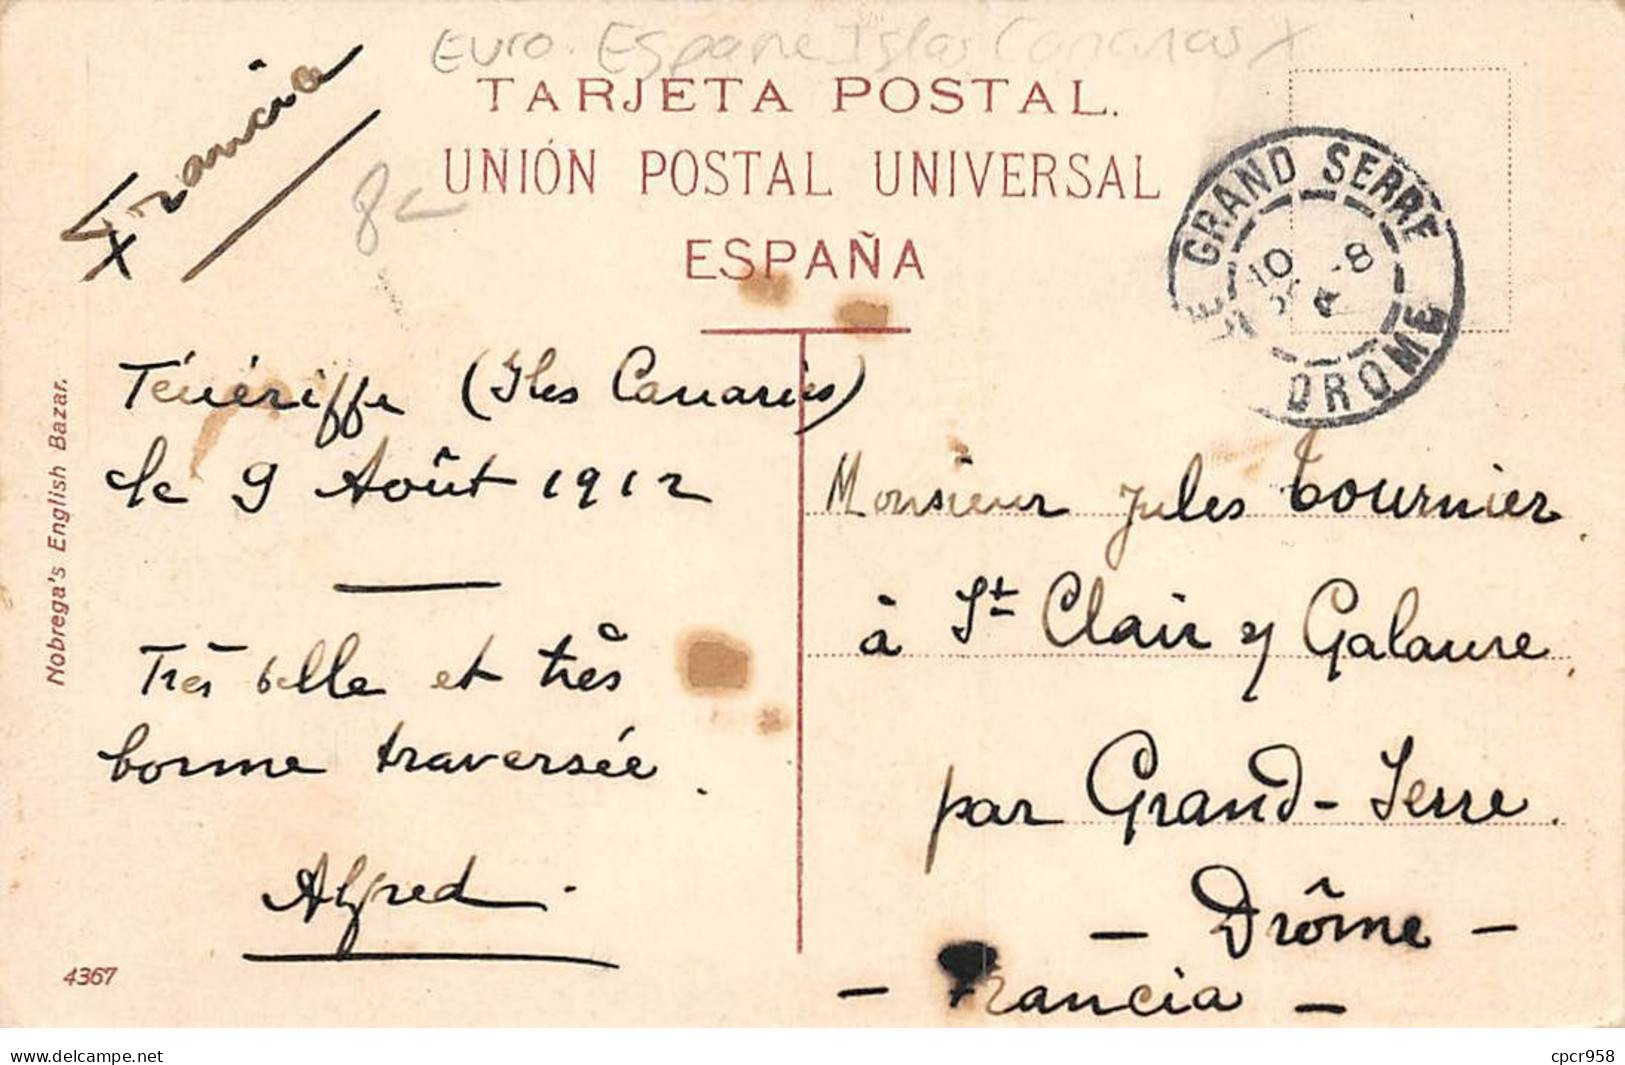 Euro. Espane Islas Canarias X
TARJETA POSTAL.
UNIÓN POSTAL UNIVERSAL
ESPAÑA
Francia
X
8
GRAND SERRE
10
-8
DROME
Ténériffe (Iles Canaries)
le 9 Août 1912
Très belle et très
bonne traversée.
Alfred.
Monsieur Jules Tournier
à St Clair s/ Galaure
par Grand-Serre.
- Drôme -
- Francia -
Nobrega's English Bazar.
4367
delcampe.net
cpcr958